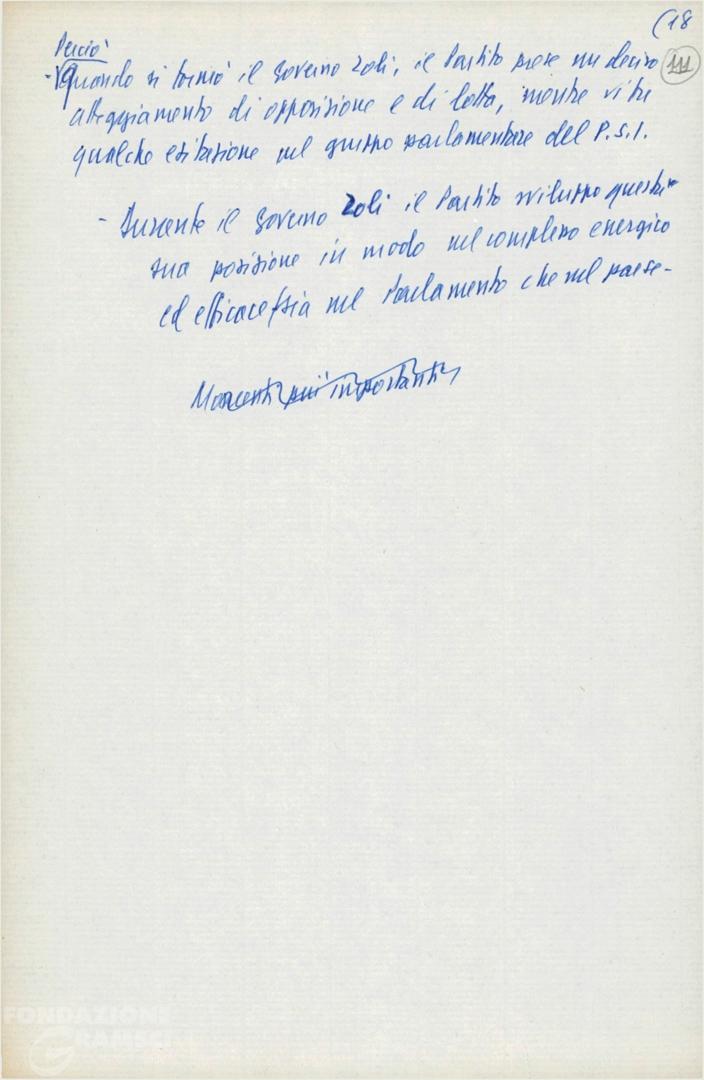 (18
111
Perciò
- quando si formò il Governo Zoli, il Partito prese un deciso
atteggiamento di opposizione e di lotta, mentre vi fu
qualche esitazione nel gruppo parlamentare del P.S.I.
- Durante il Governo Zoli il Partito sviluppò questa
sua posizione in modo nel complesso energico
ed efficace sia nel Parlamento che nel paese-
Momenti più importanti
FONDAZIONE
GRAMSCI